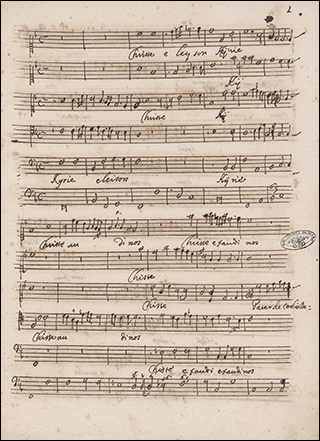 1
Christe eleyson Kyrie
Ky
Christe Ky
Kyrie eleison Kyrie
Christe au di nos Christe exaudi nos
Christe
Christe Pater de Coelis
Christe au di nos
Christe exaudi exaudi nos